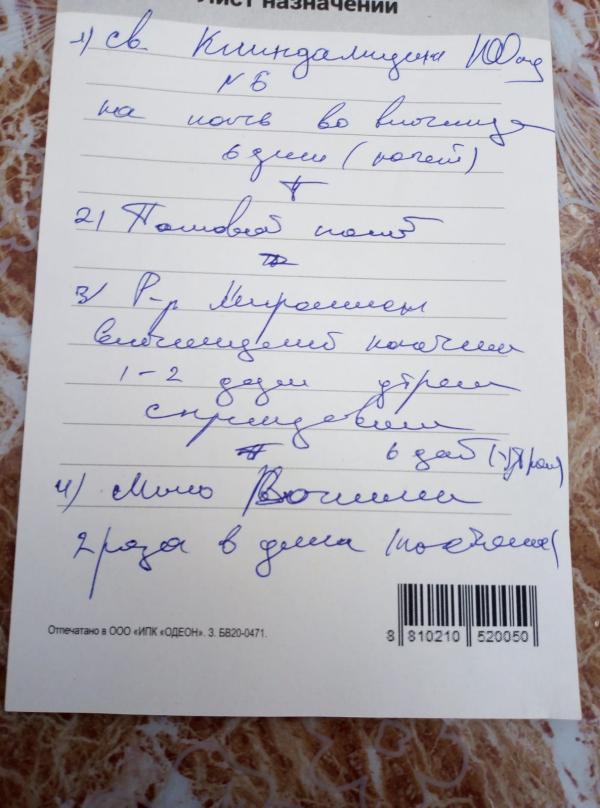 Лист назначений
1) св. Клиндамицин 100 мг
№ 6
на ночь во влагалище
6 дней (ночей)
2) Половой покой
3) Р-р Мирамистин
1-2 дозы утром
спринцевание
6 дней (утром)
4)
2 раза в день
Отпечатано в ООО «ИПК «ОДЕОН». З. БВ20-0471.
8 810210 520050